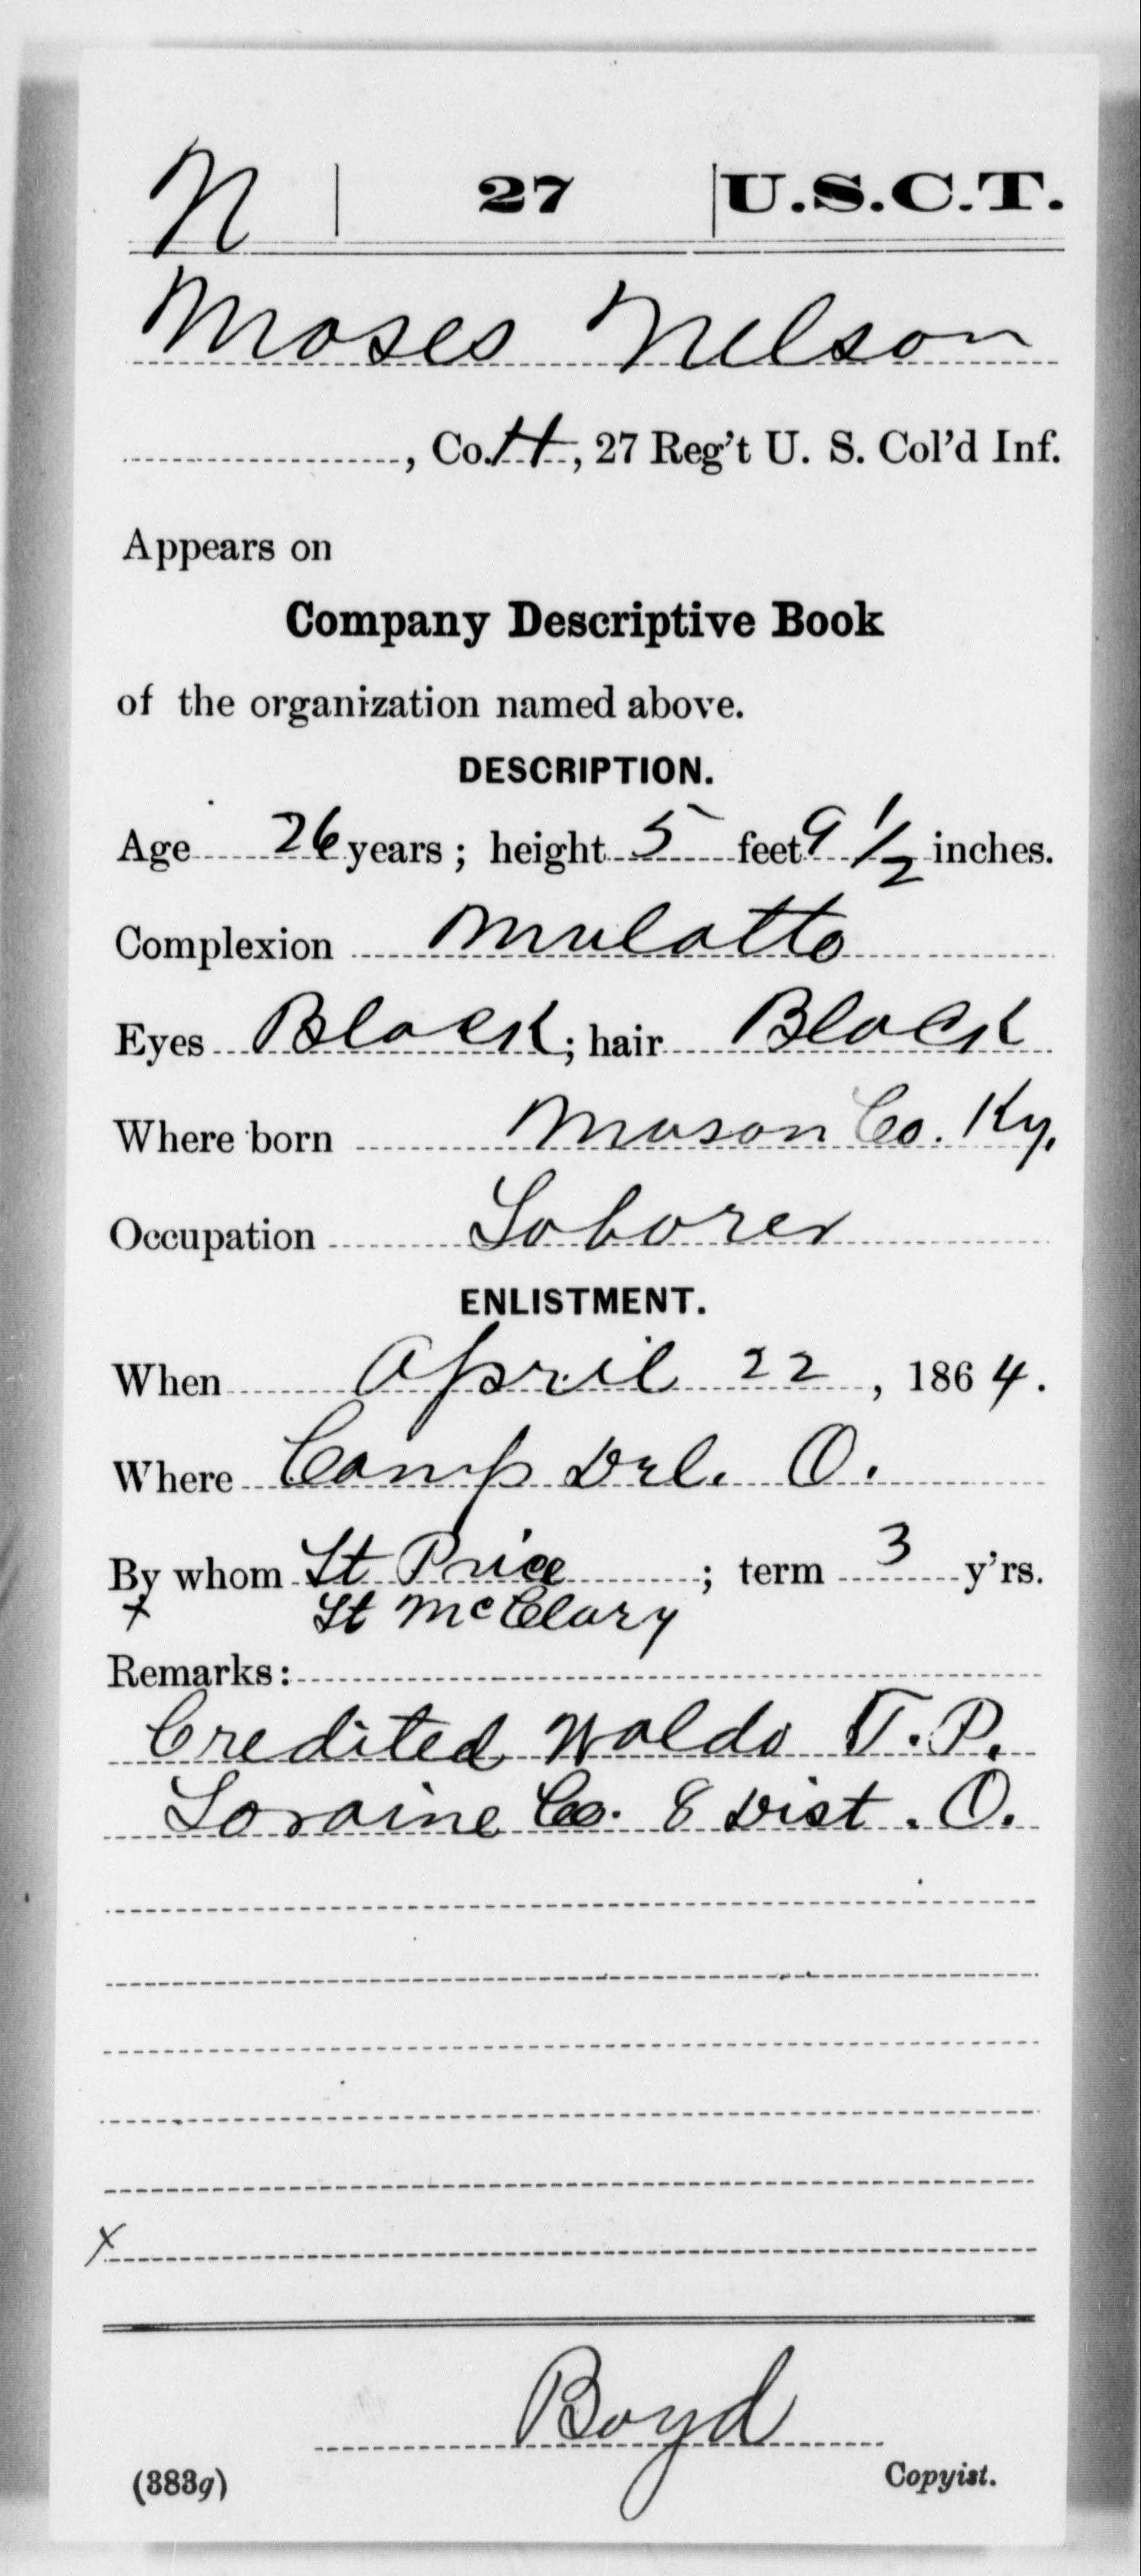 N | 27 | U.S.C.T.
Moses Nelson
, Co. H, 27 Reg't U. S. Col'd Inf.
Appears on
Company Descriptive Book
of the organization named above.
DESCRIPTION.
Age 26 years; height 5 feet 9 1/2 inches.
Complexion Mulatto
Eyes Black; hair Black
Where born Mason Co. Ky.
Occupation Laborer
ENLISTMENT.
When April 22, 1864.
Where Camp Del. O.
By whom Lt Price; term 3 y'rs.
x Lt McClary
Remarks:
Credited Waldo T.P.
Loraine Co. 8 Dist. O.
x
Boyd
(383g) Copyist.